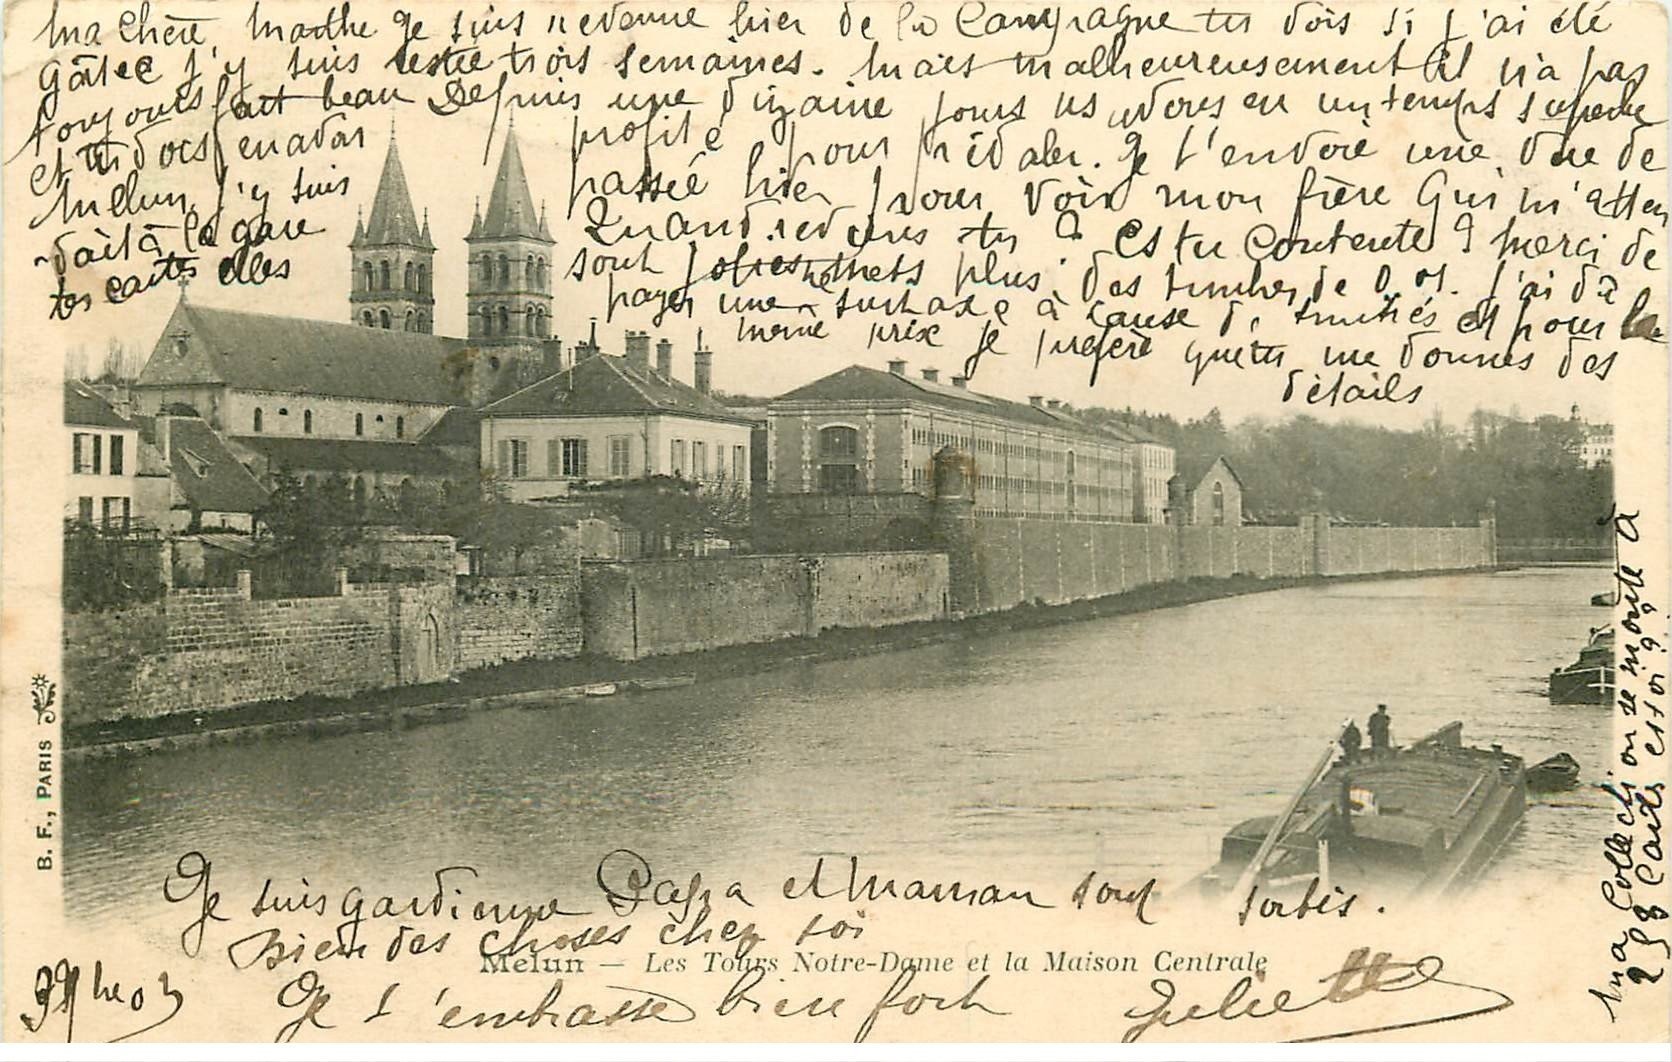 Ma Chère Marthe Je suis revenue hier de la Campagne tu vois si j'ai été
gâtee j'y suis restée trois semaines. Mais malheureusement il n'a pas
toujours fait beau Depuis une dizaine jours
un temps superbe
et profité pour Je t'envoie une vue de
Melun j'y suis passée hier pour voir mon frère Qui m'atten
dait à la gare Quand reviens tu ? Es tu Contente ? Merci de
tes cartes elles sont plus des timbres de 0,01. J'ai dû
payer une surtaxe à cause d' et pour le
même prix je préfère que tu me donnes des
détails
Ma Collection se monte à
258 Cartes et toi ?
B. F., PARIS
Je suis gardienne Papa et Maman sont sortis.
Bien des choses chez toi
Melun — Les Tours Notre-Dame et la Maison Centrale
Je t'embrasse bien fort Juliette